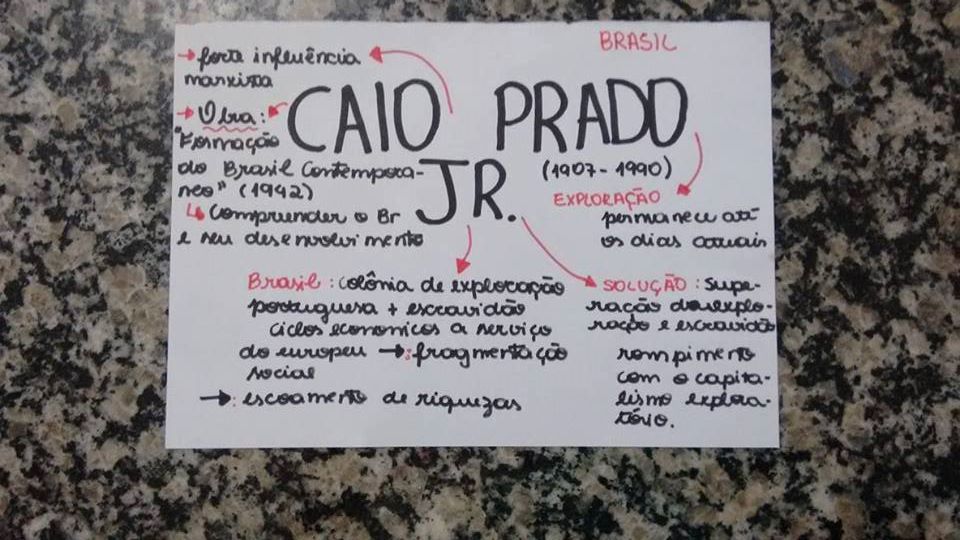 BRASIL
→ forte influência
marxista
CAIO PRADO
JR.
(1907-1990)
→ Obra:
"Formação
do Brasil Contemporâ-
neo" (1942)
↳ Compreender o Br
e seu desenvolvimento
EXPLORAÇÃO
permaneceu até
os dias atuais
Brasil: colônia de exploração
portuguesa + escravidão
ciclos economicos a serviço
do europeu →: fragmentação
social
→: escoamento de riquezas
SOLUÇÃO: supe-
ração da explo-
ração e escravidão
rompimento
com o capita-
lismo explora-
tório.